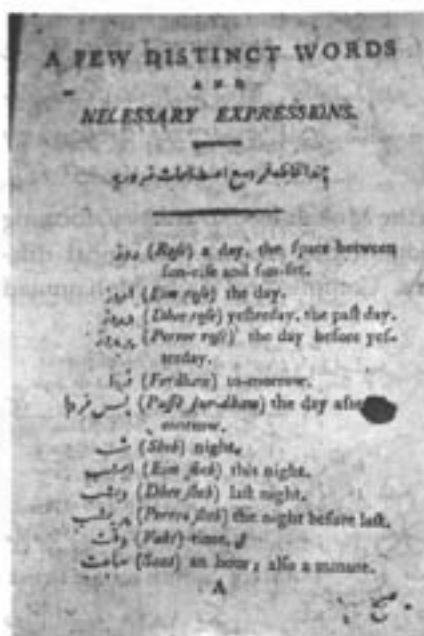 A FEW DISTINCT WORDS
AND
NECESSARY EXPRESSIONS.
روز (Rose) a day, the space between
sun-rise and sun-set.
امروز (Eim rose) the day.
دیروز (Dhee rose) yesterday, the past day.
پریروز (Perree rose) the day before yes-
terday.
فردا (Ferdhaw) to-morrow.
پس فردا (Pussé fur-dhaw) the day after
morrow.
شب (Sheb) night.
امشب (Eim sheb) this night.
دیشب (Dhee sheb) last night.
پریشب (Perree sheb) the night before last.
وقت (Vakt) time,
ساعت (Saat) an hour; also a minute.
A
صبح